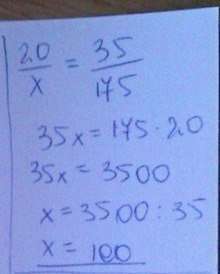 20/x = 35/175
35x = 175 · 20
35x = 3500
x = 3500 : 35
x = 100